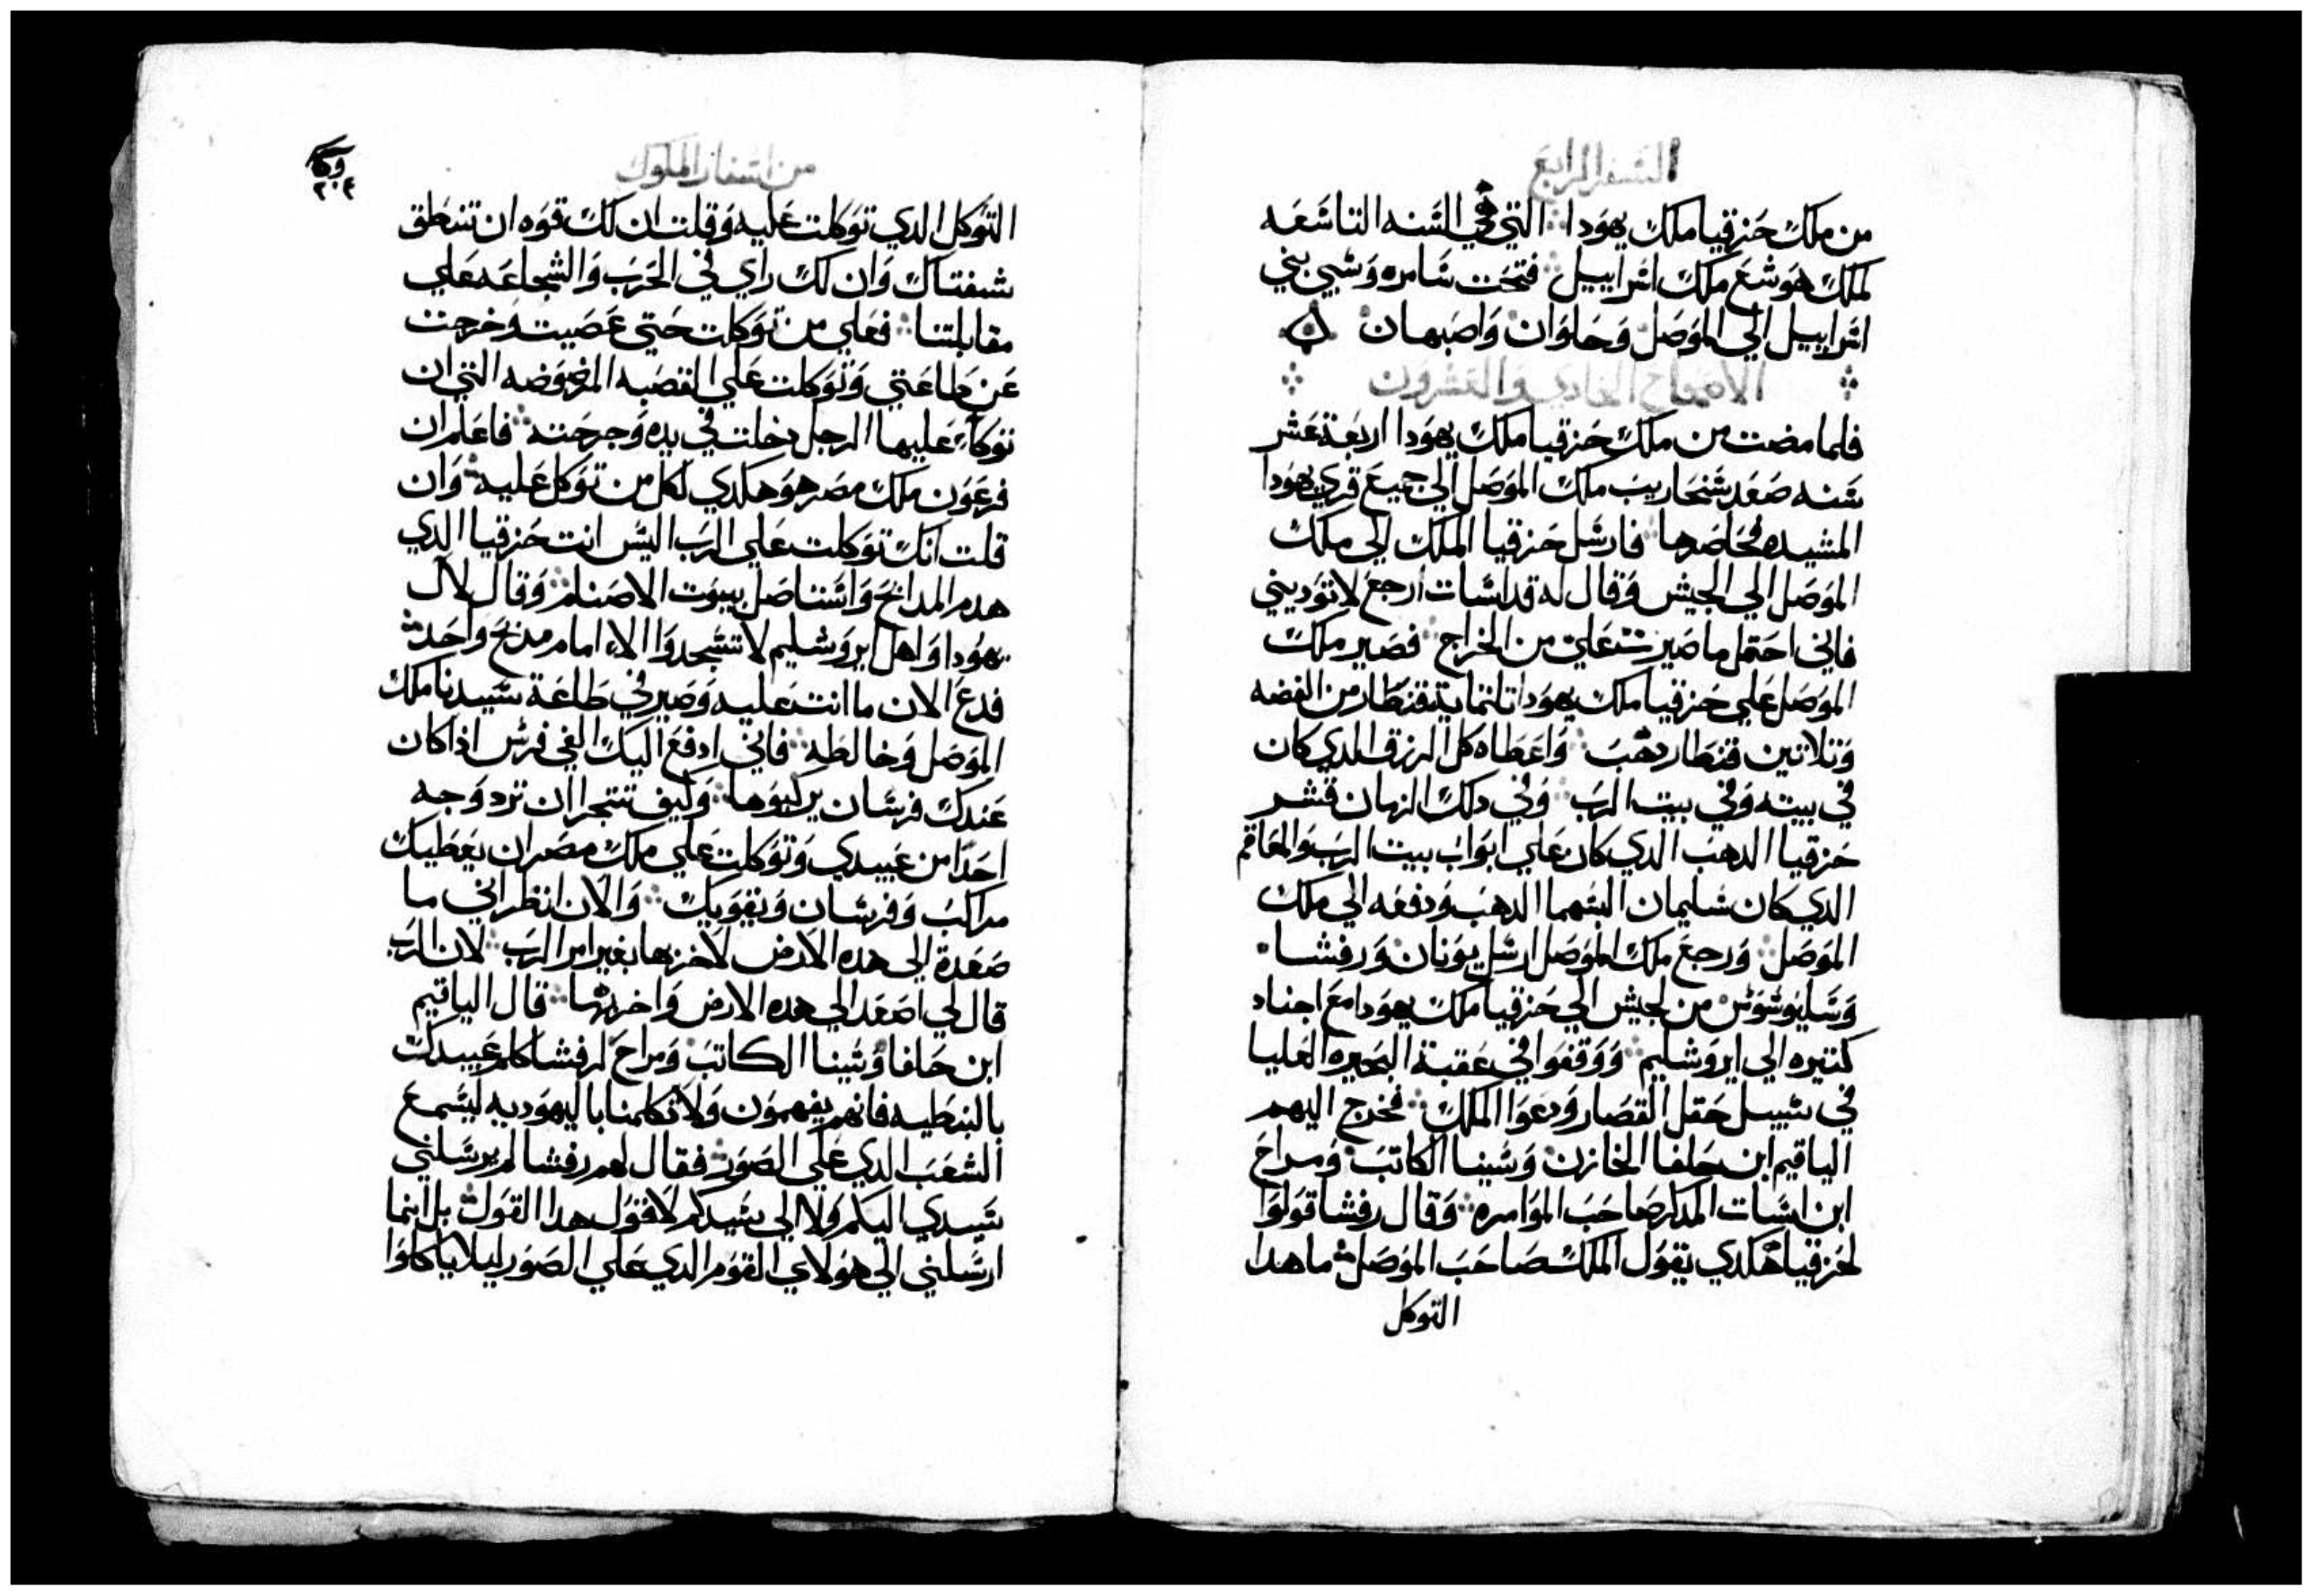 السفر الرابع
من ملك حزقيا ملك يهودا التي هي السنه التاسعه
لملك هوشع ملك اسراييل فتحت سامره وسبي بني
اسراييل الي الموصل وحلوان واصبهان
الاصحاح الحادي والعشرون
فلما مضت من ملك حزقيا ملك يهودا اربعة عشر
سنه صعد سنحاريب ملك الموصل الي جميع قري يهودا
المشيده فحاصرها فارسل حزقيا الملك الي ملك
الموصل الي الجيش وقال له قد اسات ارجع لا توديني
فاني احتمل ما صيرت علي من الخراج فصير ملك
الموصل علي حزقيا ملك يهودا تلتماية قنطار من الفضه
وتلاتين قنطار دهب واعطاه كل الرزق الدي كان
في بيته وفي بيت الرب وفي دلك الزمان قشر
حزقيا الدهب الدي كان علي ابواب بيت الرب والمعاقم
الدي كان سليمان البسهما الدهب ودفعه الي ملك
الموصل ورجع ملك الموصل ارسل يونان ورفشا
من لجيش الي حزقيا ملك يهودا مع اجناد
كتيره الي ايروشليم ووقفوا في عقبة البحيره العليا
في سبيل حقل القصار ودعوا الملك فخرج اليهم
الياقيم ابن حلفا الخازن وشينا الكاتب ومراح
ابن اسات المدكر صاحب الموامره وقال رفشا قولوا
لحزقيا هكدي يقول الملك صاحب الموصل ما هدا
التوكل
من اسفار الملوك
٢٠٤
التوكل الدي توكلت عليه وقلت ان لك قوه ان تنطق
شفتاك وان لك راي في الحرب والشجاعه علي
مقابلتنا فعلي من توكلت حتي عصيت وخرجت
عن طاعتي وتوكلت علي القصبه المرضوضه التي ان
توكاء عليها الرجل دخلت في يده وجرحته فاعلم ان
فرعون ملك مصر هو هكدي لكل من توكل عليه وان
قلت انك توكلت علي الرب اليس انت حزقيا الدي
هدم المدابح واستاصل بيوت الاصنام وقال لال
يهودا واهل يروشليم لا تسجدوا الاء امام مدبح واحد
فدع الان ما انت عليه وصير في طاعة سيدنا ملك
الموصل وخالطه فاني ادفع اليك الفي فرس اذا كان
عندك فرسان يركبوها وكيف تتجرا ان ترد وجه
احدا من عبيدي وتوكلت علي ملك مصر ان يعطيك
مراكب وفرسان ويقويك والان انظر اني ما
صعدة الي هده الارض لاخربها بغير امر الرب لان الرب
قال لي اصعد الي هده الارض واخربها قال الياقيم
ابن حلفا وشينا الكاتب ومراح لرفشا كلم عبيدك
بالنبطيه فانهم يفهمون ولا تكلمنا باليهوديه ليسمع
الشعب الدي علي الصور فقال لهم رفشا لم يرسلني
سيدي اليكم ولا الي سيدكم لاقول هدا القول بل انما
ارسلني الي هولاي القوم الدي علي الصور ليلا ياكلوا